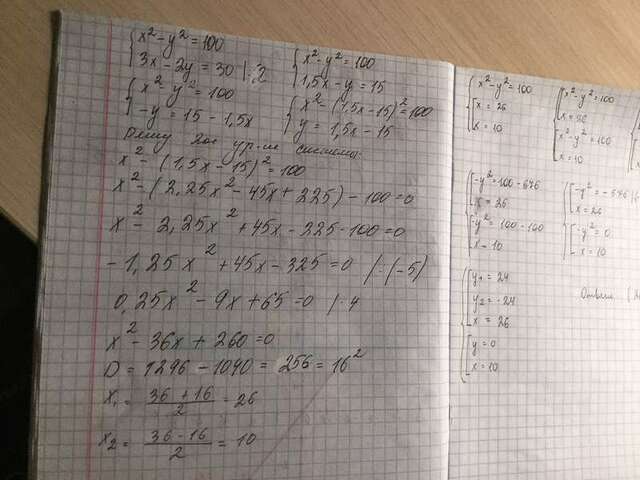 x² - y² = 100
3x - 2y = 30 |:2
x² - y² = 100
1,5x - y = 15
x² - y² = 100
-y = 15 - 1,5x
x² - (1,5x - 15)² = 100
y = 1,5x - 15
Решу 2ое ур-ие системы:
x² - (1,5x - 15)² = 100
x² - (2,25x² - 45x + 225) - 100 = 0
x² - 2,25x² + 45x - 225 - 100 = 0
-1,25x² + 45x - 325 = 0 | : (-5)
0,25x² - 9x + 65 = 0 | · 4
x² - 36x + 260 = 0
D = 1296 - 1040 = 256 = 16²
x₁ = (36 + 16)/2 = 26
x₂ = (36 - 16)/2 = 10
x² - y² = 100
x = 26
x = 10
x² - y² = 100
x = 26
x² - y² = 100
x = 10
-y² = 100 - 676
x = 26
-y² = 100 - 100
x = 10
x = 26
-y² = 0
x = 10
y₁ = 24
y₂ = -24
x = 26
y = 0
x = 10
Ответ: